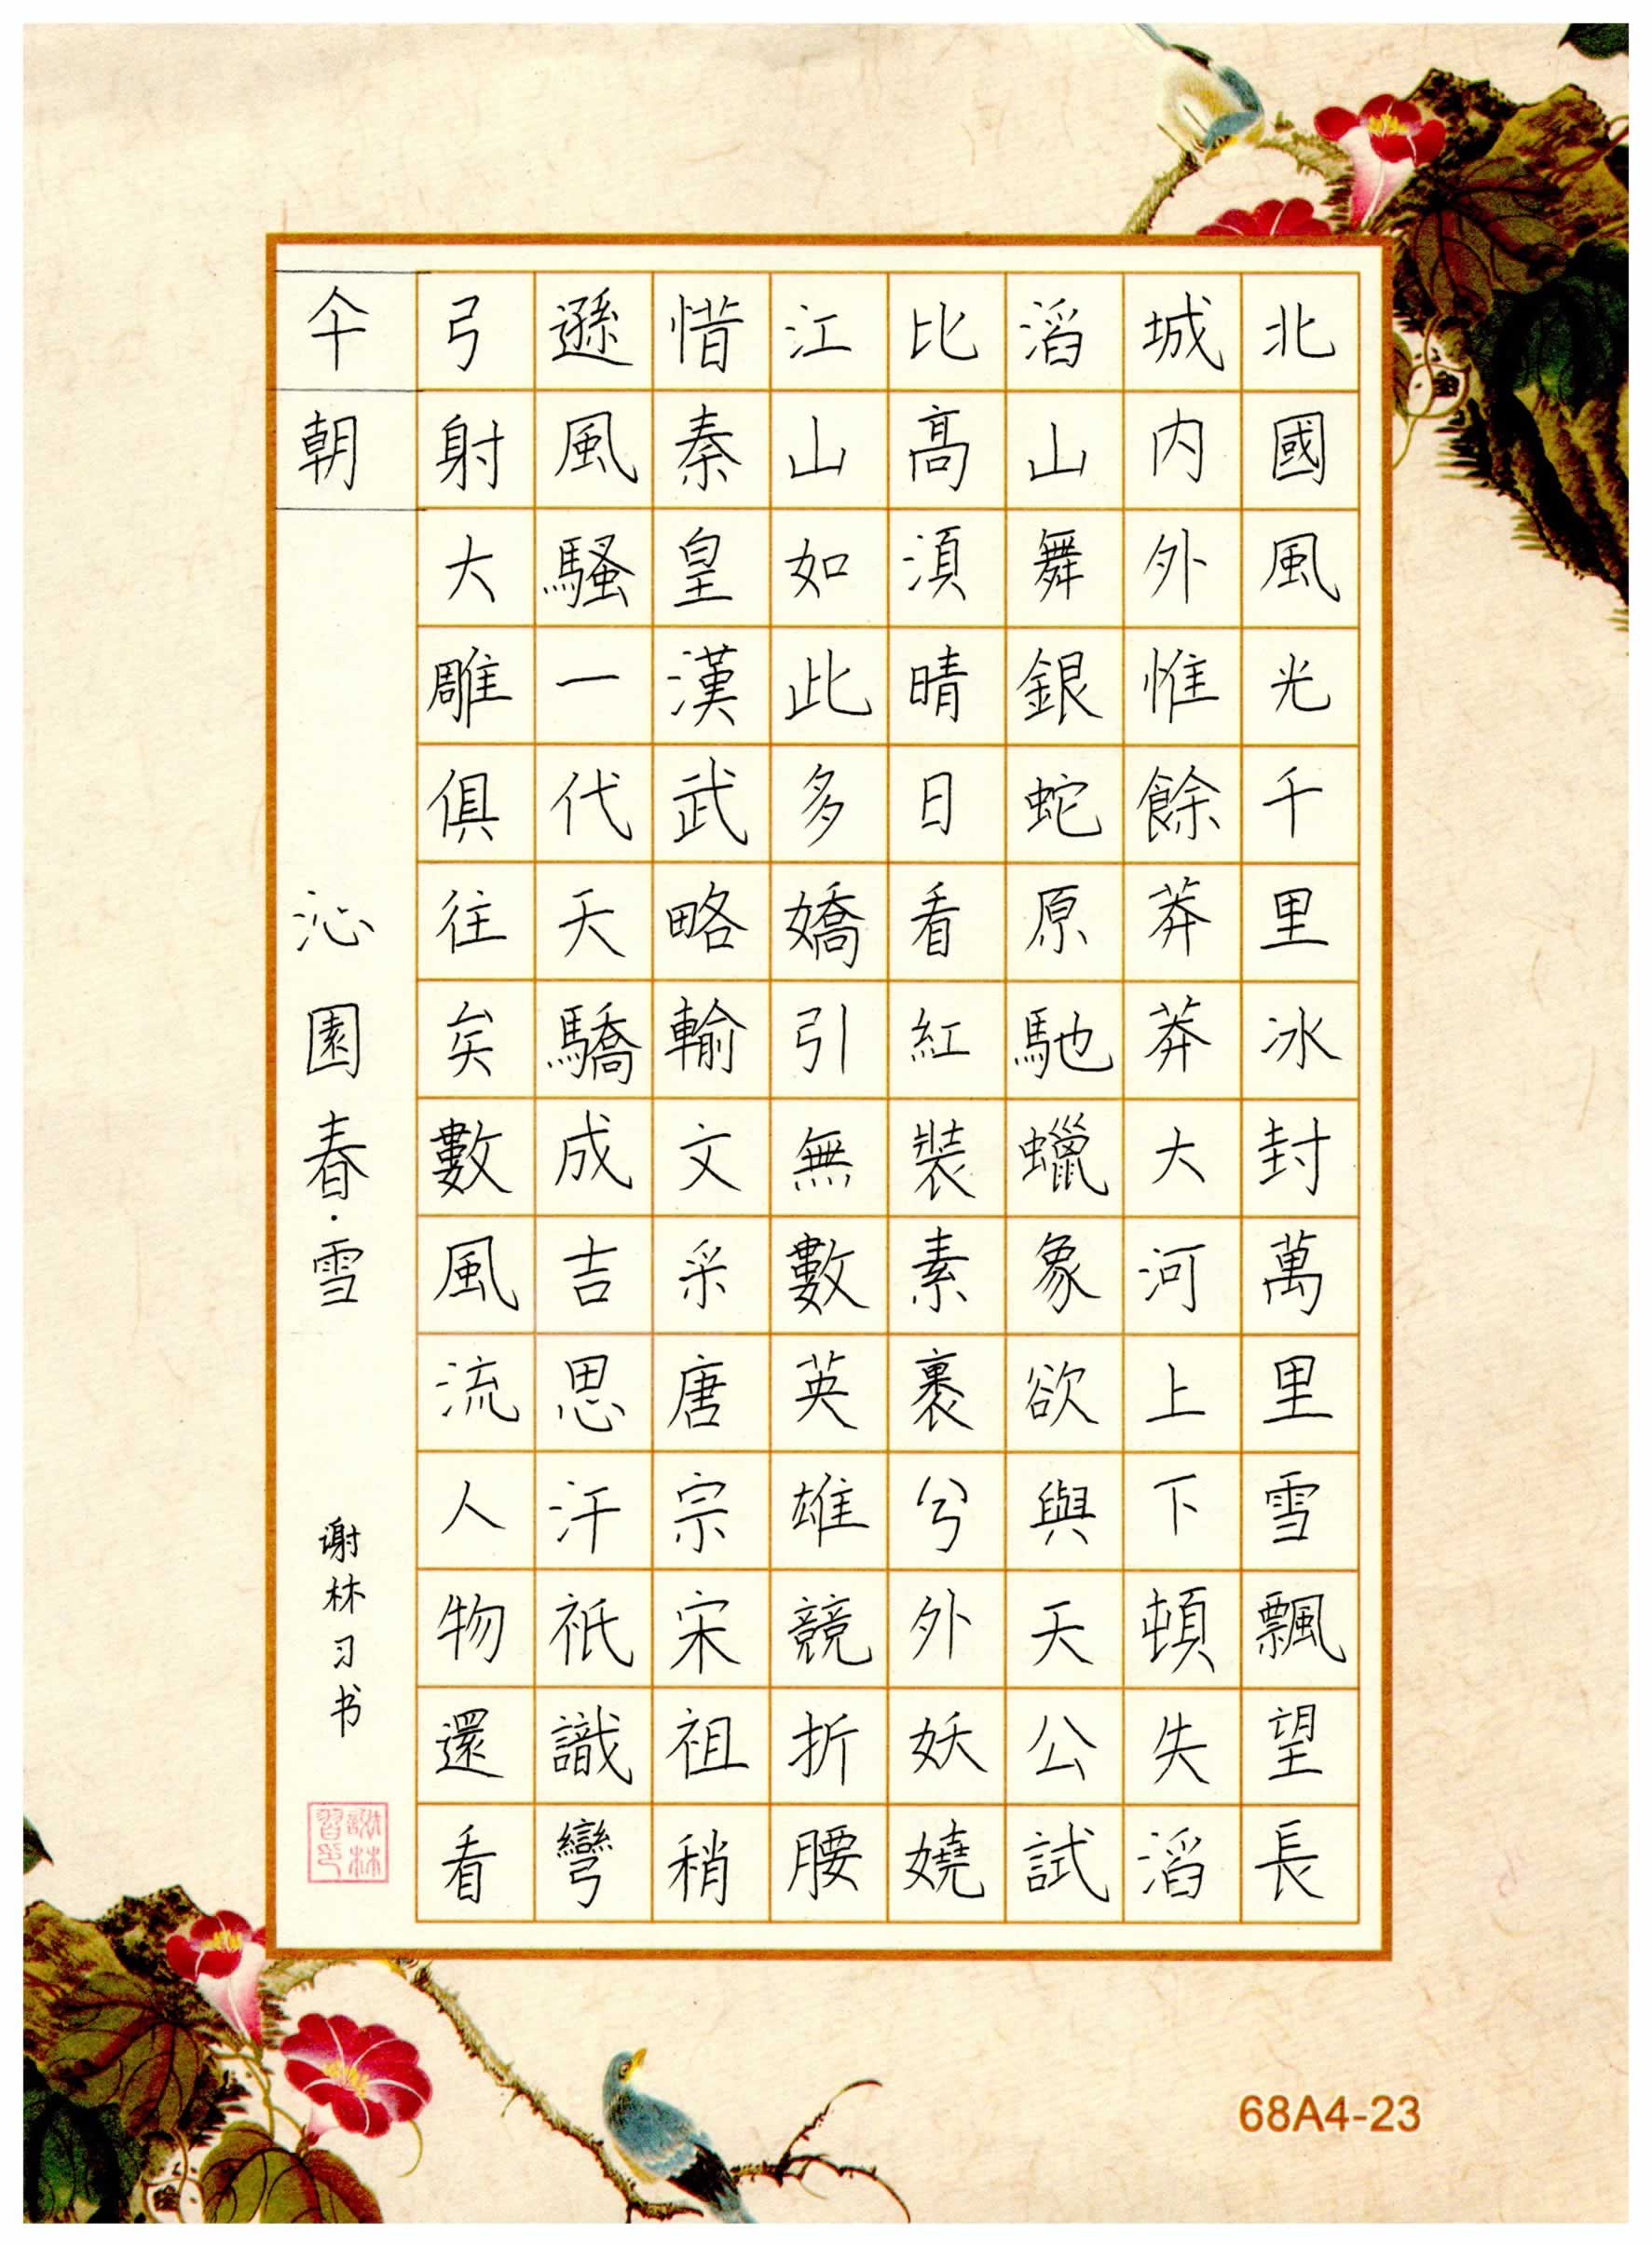 北國風光千里冰封萬里雪飄望長
城内外惟餘莽莽大河上下頓失滔
滔山舞銀蛇原馳蠟象欲與天公試
比高湏晴日看紅裝素裹兮外妖嬈
江山如此多嬌引無數英雄競折腰
惜秦皇漢武略輸文采唐宗宋祖稍
遜風騷一代天驕成吉思汗祇識彎
弓射大雕俱往矣數風流人物還看
今朝
沁園春·雪
谢林习书
謝林習印
68A4-23